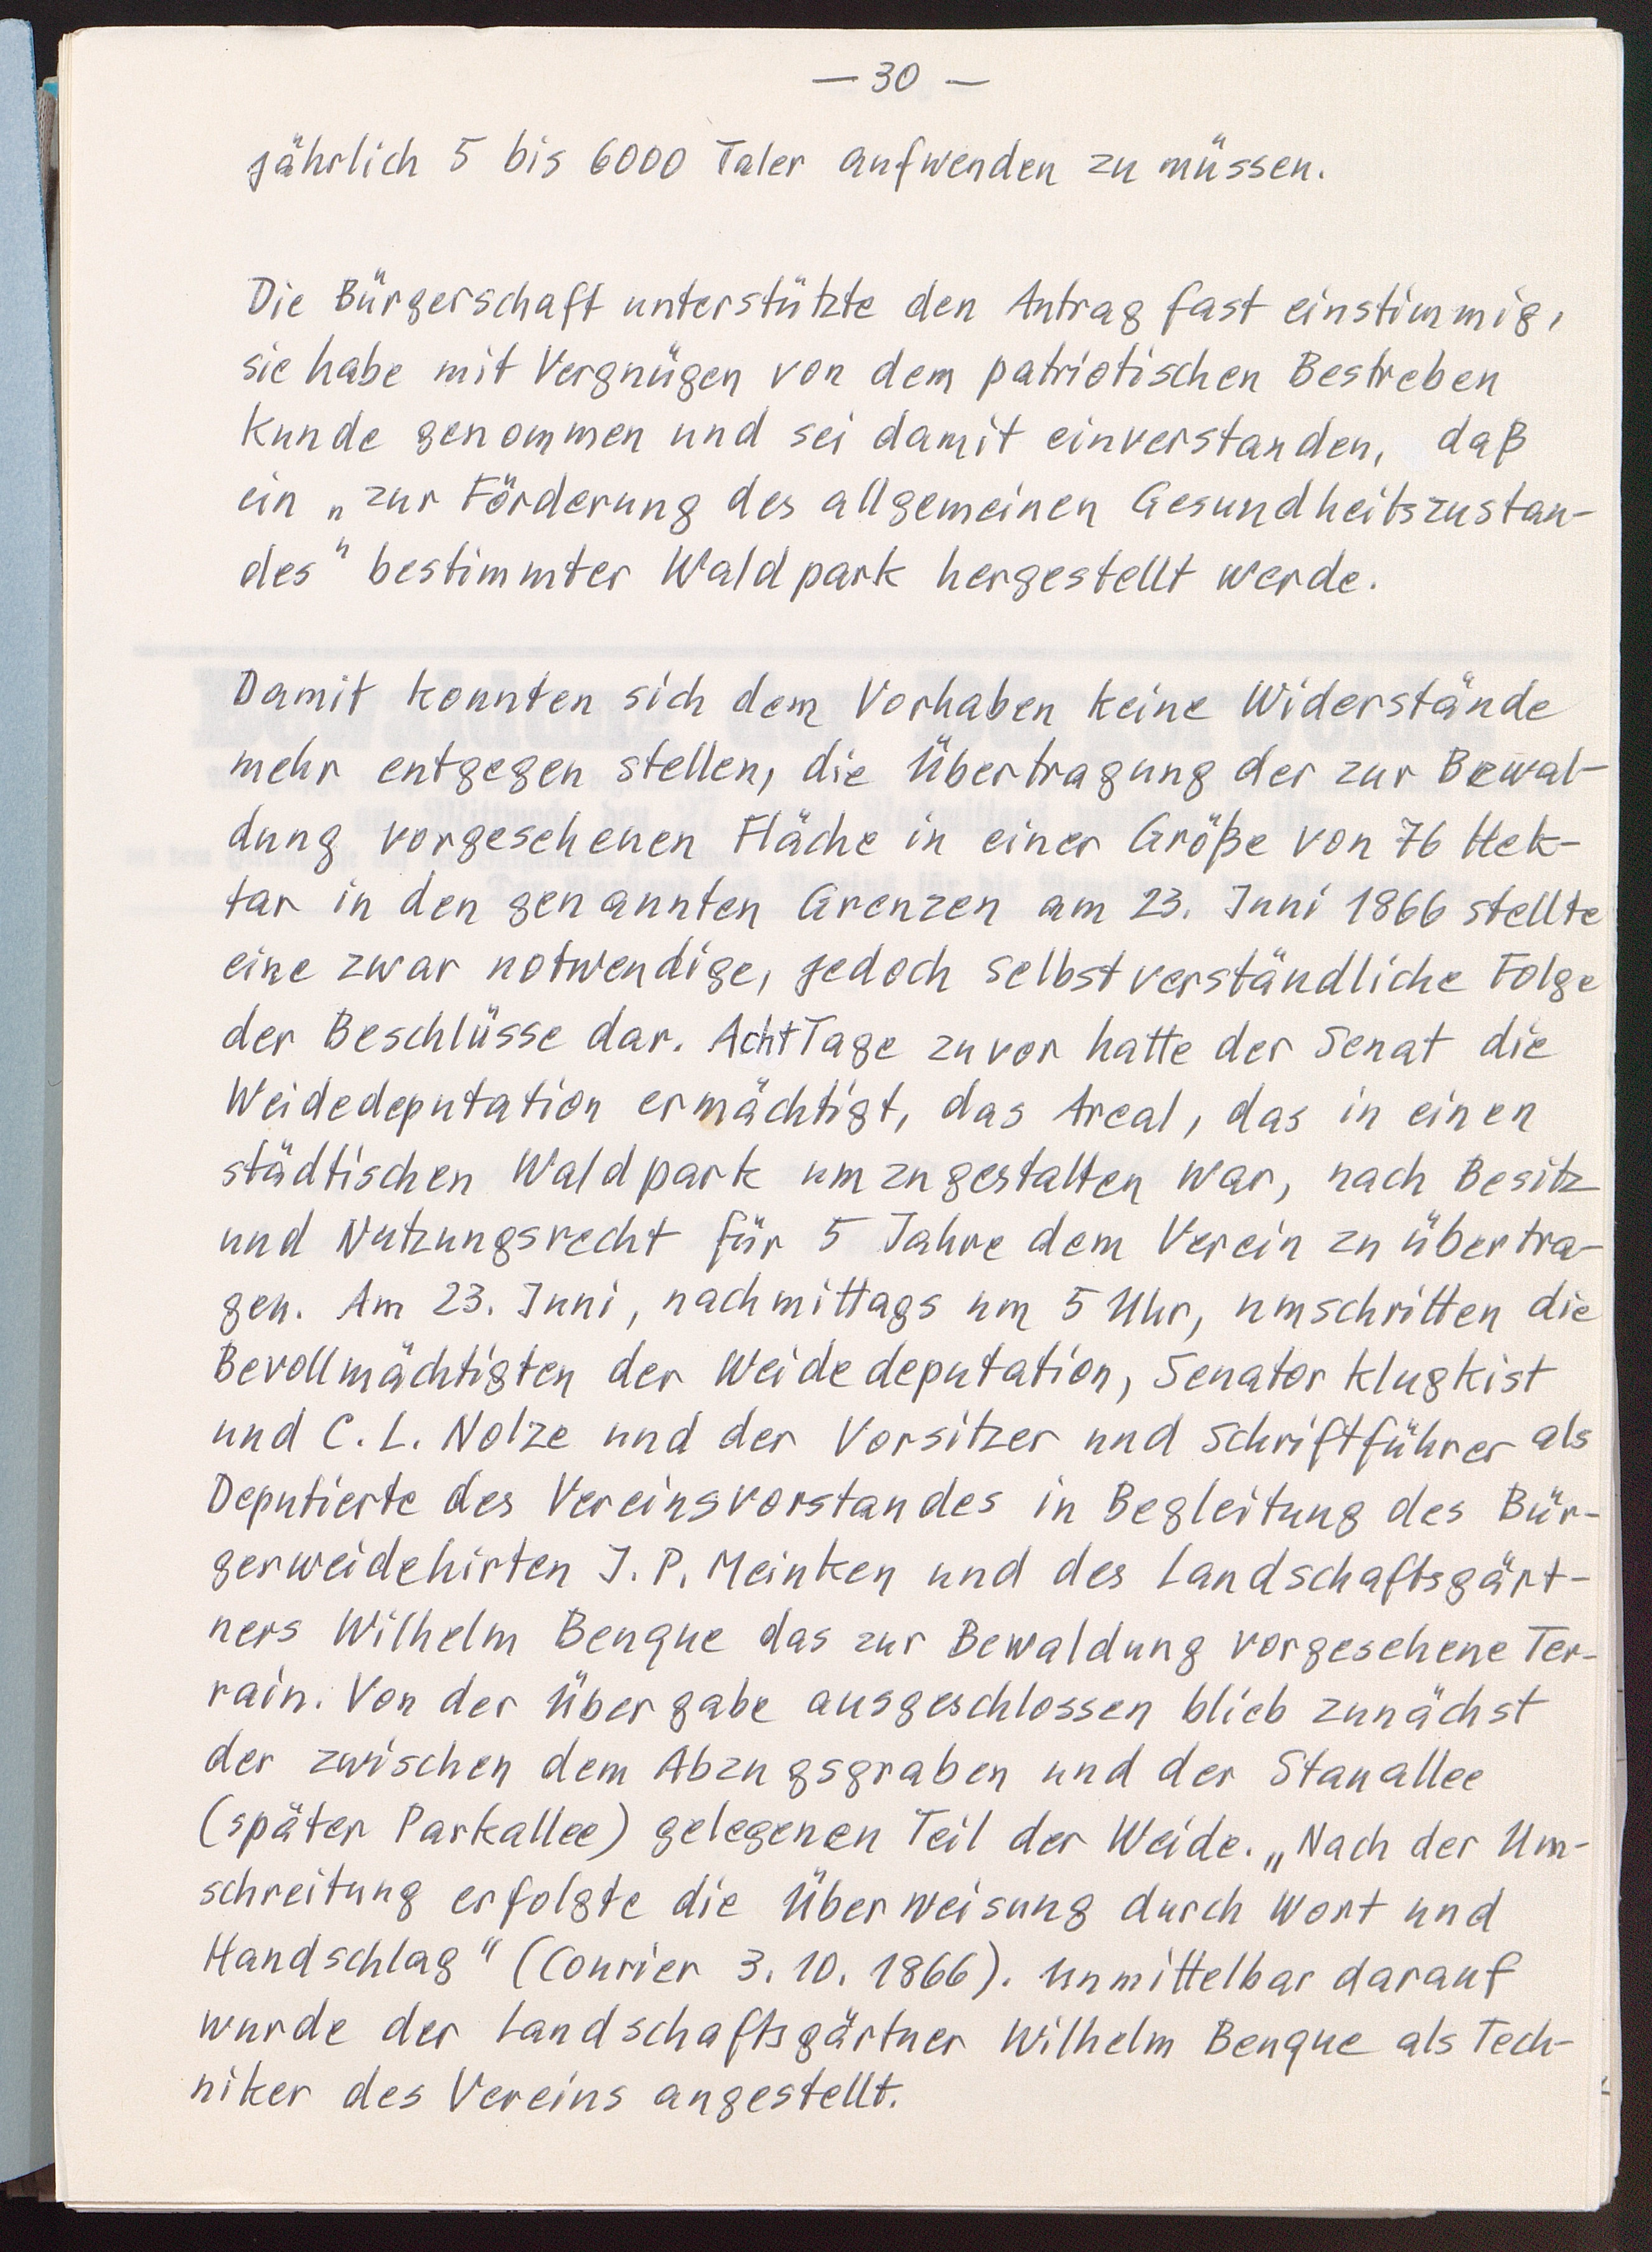 — 30 —
jährlich 5 bis 6000 Taler aufwenden zu müssen.
Die Bürgerschaft unterstützte den Antrag fast einstimmig,
sie habe mit Vergnügen von dem patriotischen Bestreben
Kunde genommen und sei damit einverstanden, daß
ein „zur Förderung des allgemeinen Gesundheitszustan-
des" bestimmter Waldpark hergestellt werde.
Damit konnten sich dem Vorhaben keine Widerstände
mehr entgegen stellen, die Übertragung der zur Bewal-
dung vorgesehenen Fläche in einer Größe von 76 Hek-
tar in den genannten Grenzen am 23. Juni 1866 stellte
eine zwar notwendige, jedoch selbstverständliche Folge
der Beschlüsse dar. Acht Tage zuvor hatte der Senat die
Weidedeputation ermächtigt, das Areal, das in einen
städtischen Waldpark umzugestalten war, nach Besitz
und Nutzungsrecht für 5 Jahre dem Verein zu übertra-
gen. Am 23. Juni, nachmittags um 5 Uhr, umschritten die
Bevollmächtigten der Weidedeputation, Senator Klugkist
und C. L. Nolze und der Vorsitzer und Schriftführer als
Deputierte des Vereinsvorstandes in Begleitung des Bür-
gerweidehirten J. P. Meinken und des Landschaftsgärt-
ners Wilhelm Benque das zur Bewaldung vorgesehene Ter-
rain. Von der Übergabe ausgeschlossen blieb zunächst
der zwischen dem Abzugsgraben und der Stauallee
(später Parkallee) gelegenen Teil der Weide. „Nach der Um-
schreitung erfolgte die Überweisung durch Wort und
Handschlag" (Courier 3. 10. 1866). Unmittelbar darauf
wurde der Landschaftsgärtner Wilhelm Benque als Tech-
niker des Vereins angestellt.